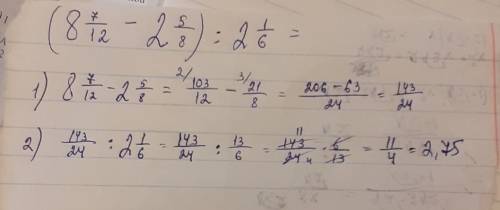 (8 7/12 - 2 5/8) : 2 1/6 =
1) 8 7/12 - 2 5/8 = 2/ 103/12 - 3/ 21/8 = 206-63/24 = 143/24
2) 143/24 : 2 1/6 = 143/24 : 13/6 = 11 143/24 4 · 6/13 = 11/4 = 2,75